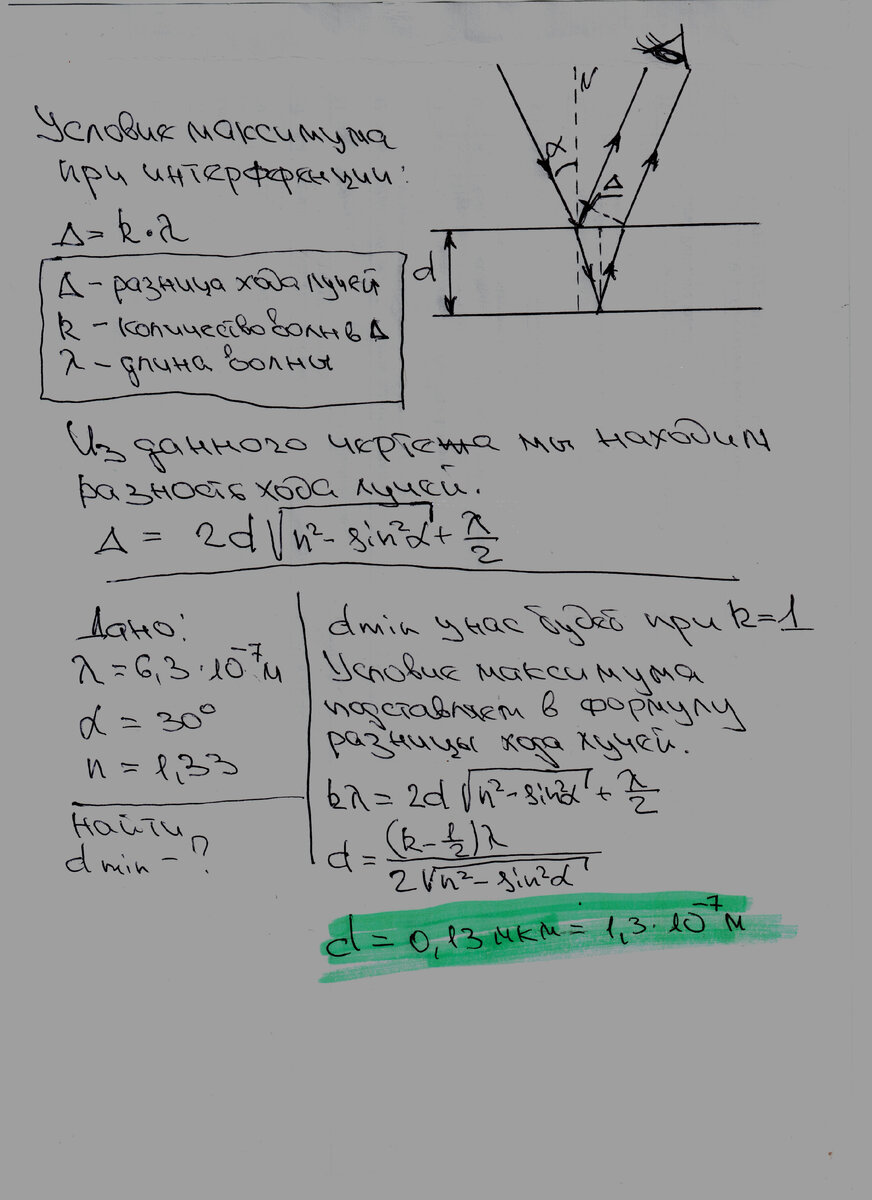 Условие максимума
при интерференции:
Δ = k·λ
Δ – разница хода лучей
k – количество волн в Δ
λ – длина волны
N
α
Δ
d
Из данного чертежа мы находим
разность хода лучей.
Δ = 2d√(n² – sin²α) + λ/2
Дано:
λ = 6,3·10⁻⁷ м
α = 30°
n = 1,33
найти
d min – ?
d min у нас будет при k=1
Условие максимума
подставляем в формулу
разницы хода лучей.
kλ = 2d√(n² – sin²α) + λ/2
d = (k – 1/2)λ / 2√(n² – sin²α)
d = 0,13 мкм = 1,3·10⁻⁷ м